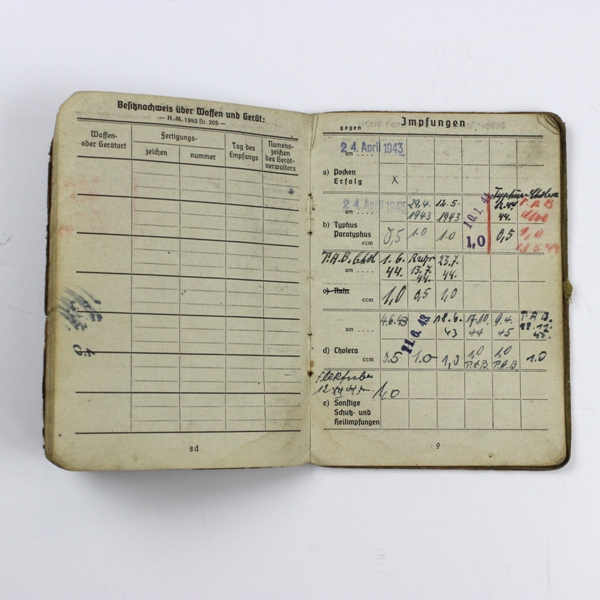 Besitznachweis über Waffen und Gerät:
— H. M. 1940 Nr. 205 —
Waffen- oder Gerätart
Fertigungs-
zeichen
nummer
Tag des Empfangs
Namens- zeichen des Gerät- verwalters
8d
Impfungen
gegen
24. April 1943
am . . . .
a) Pocken
Erfolg X
24. April 1943 29.4. 1943 12.5. 1943 10.1.44
am . . . .
b) Typhus
Paratyphus
ccm 0,5 1.0 1.0 1,0 0,5 1,0
Typhus-Cholera
T.A.B. 1.6. 44. Ruhr 13.7. 44. 23.7. 44.
am . . . .
c) Ruhr
ccm 1,0 0,5 1,0
am . . . . 4.6.43 11.6.43 18.6. 43 17.10. 44 9.4. 45 T.A.B.
d) Cholera
ccm 0.5 1.0 1,0 1,0 T.A.B 1,0 T.A.B 1.0
1,0
e) Sonstige
Schutz- und
Heilimpfungen
9